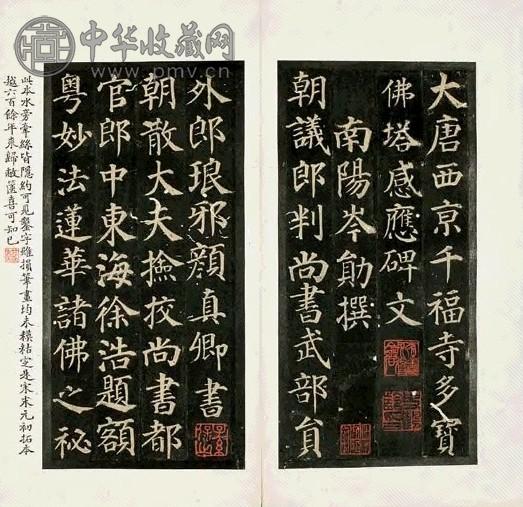 中华收藏网
www.pmv.cn
大唐西京千福寺多寶
佛塔感應碑文
南陽岑勛撰
朝議郎判尚書武部員
外郎琅邪顏真卿書
朝散大夫撿挍尚書都
官郎中東海徐浩題額
粵妙法蓮華諸佛之秘
此本水旁牽絲皆隱約可見鑿字雖損筆畫均未模糊定是宋末元初拓本
越六百餘年來歸敝篋喜可知已